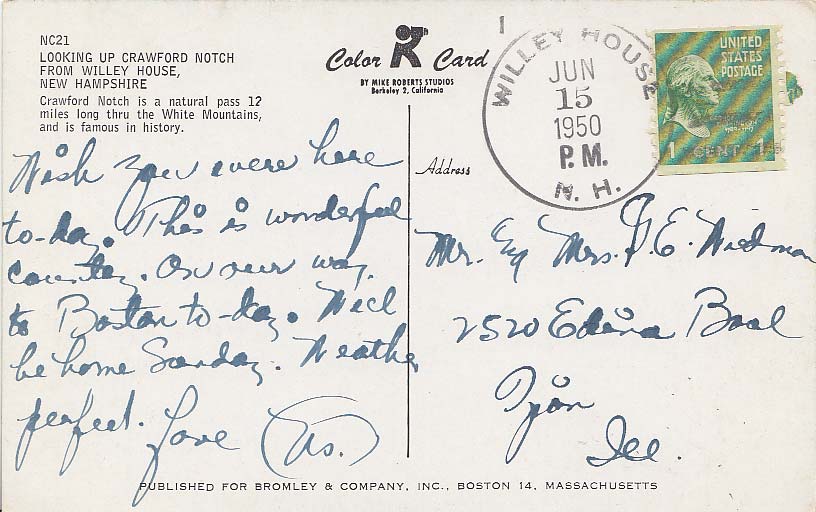 NC21
LOOKING UP CRAWFORD NOTCH
FROM WILLEY HOUSE,
NEW HAMPSHIRE
Crawford Notch is a natural pass 12
miles long thru the White Mountains,
and is famous in history.
Color Card
BY MIKE ROBERTS STUDIOS
Berkeley 2, California
WILLEY HOUSE
JUN
15
1950
P.M.
N. H.
UNITED
STATES
POSTAGE
1 CENT 1
Wish you were here
to-day. This is wonderful
country. On our way
to Boston to-day. Will
be home Sunday. Weather
perfect. Love (Us.)
Address
Mr. & Mrs. E. Widman
2520 Edina Boul
Zion
Ill.
PUBLISHED FOR BROMLEY & COMPANY, INC., BOSTON 14, MASSACHUSETTS